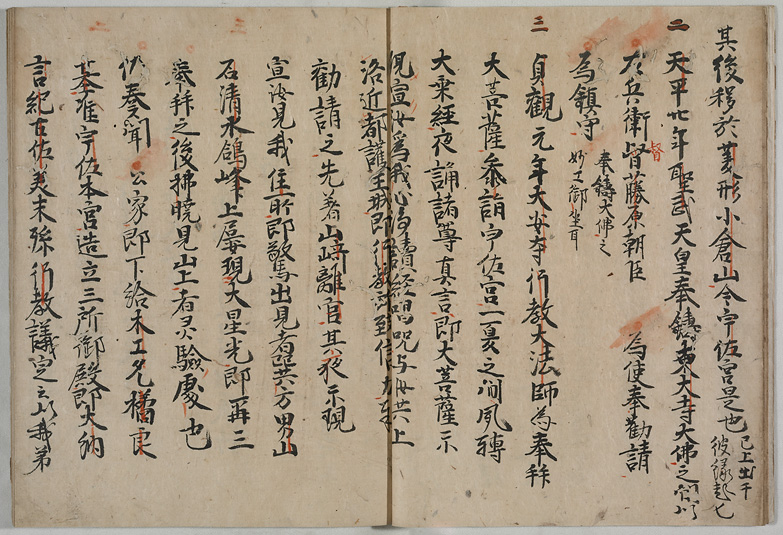 其後移於菱形小倉山今宇佐宮是也 已上出于彼縁起也
二
天平廿年聖武天皇奉鑄東大寺大佛之間以
左兵衛督藤原朝臣 為使奉勸請
為鎮守 奉鑄大佛之
三
貞觀元年大安寺行教大法師為奉拜
大菩薩參詣宇佐宮一夏之間夙轉
大乗經夜誦諸尊真言即大菩薩示
現宣
洛近都護王城即行教
勸請之先著山崎離宮其夜示現
宣汝見我住所即驚出見者巽方男山
石清水鴿峰上屡現大星光即再三
奉拜之後拂曉見山上者灵驗處也
依奏聞 公家即下給木工允橘良
基准宇佐本宮造立三所御殿即大納
言紀古佐美末孫行教議定云以我弟